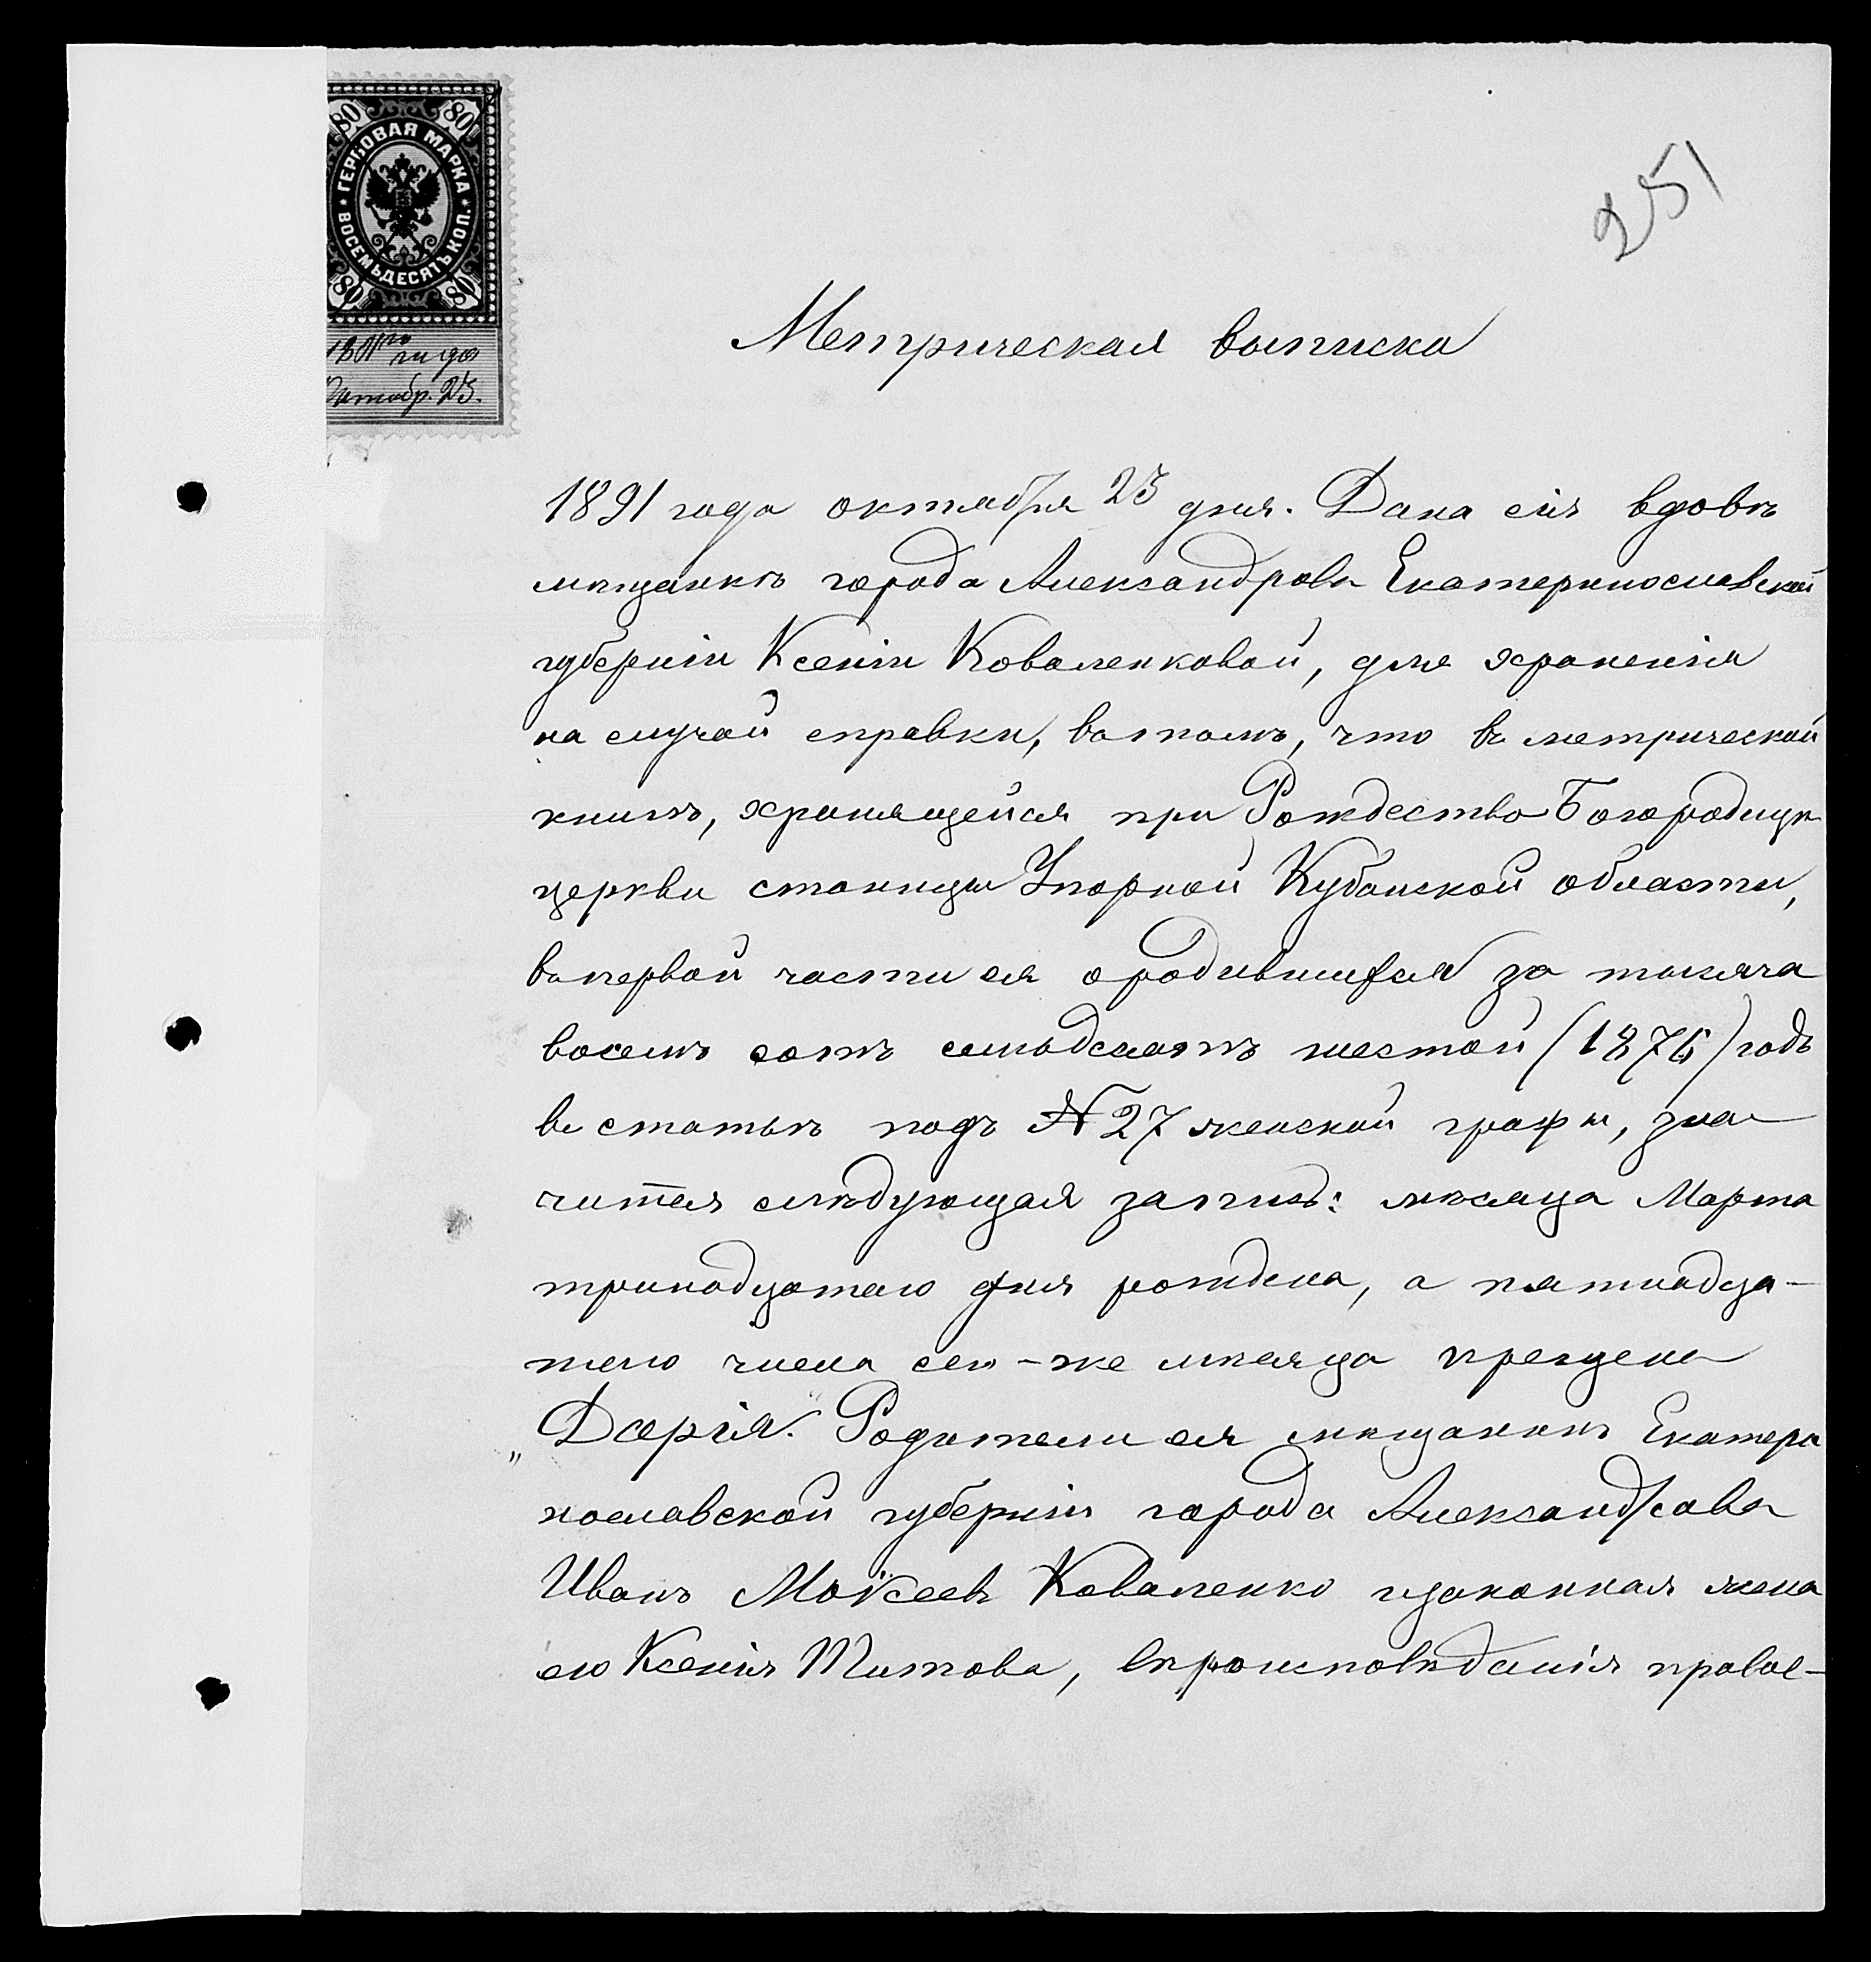 80 80
ГЕРБОВАЯ МАРКА
ВОСЕМЬДЕСЯТЪ КОП.
80 80
1891го года
Октобр. 25.
251
Метрическая выписка
1891 года октября 25 дня. Дана сія вдовѣ
мѣщанкѣ города Александрова Екатеринославской
губерніи Ксеніи Коваленковой, для храненія
на случай справки, въ томъ, что въ метрической
книгѣ, хранящейся при Рождество-Богородицк.
церкви станицы Упорной Кубанской области,
въ первой части ея о родившихся за тысяча
восемь сотъ семьдесятъ шестой (1876) годъ
въ статьѣ подъ № 27 женской графы, зна-
чится слѣдующая запись: мѣсяца Марта
тринадцатаго дня рождена, а пятнадца-
таго числа сего-же мѣсяца крещена
„Дарія. Родители ея мѣщанинъ Екатери
нославской губерніи города Александрова
Иванъ Моѵсеевъ Коваленко и законная жена
его Ксенія Титова, вѣроисповѣданія правос-